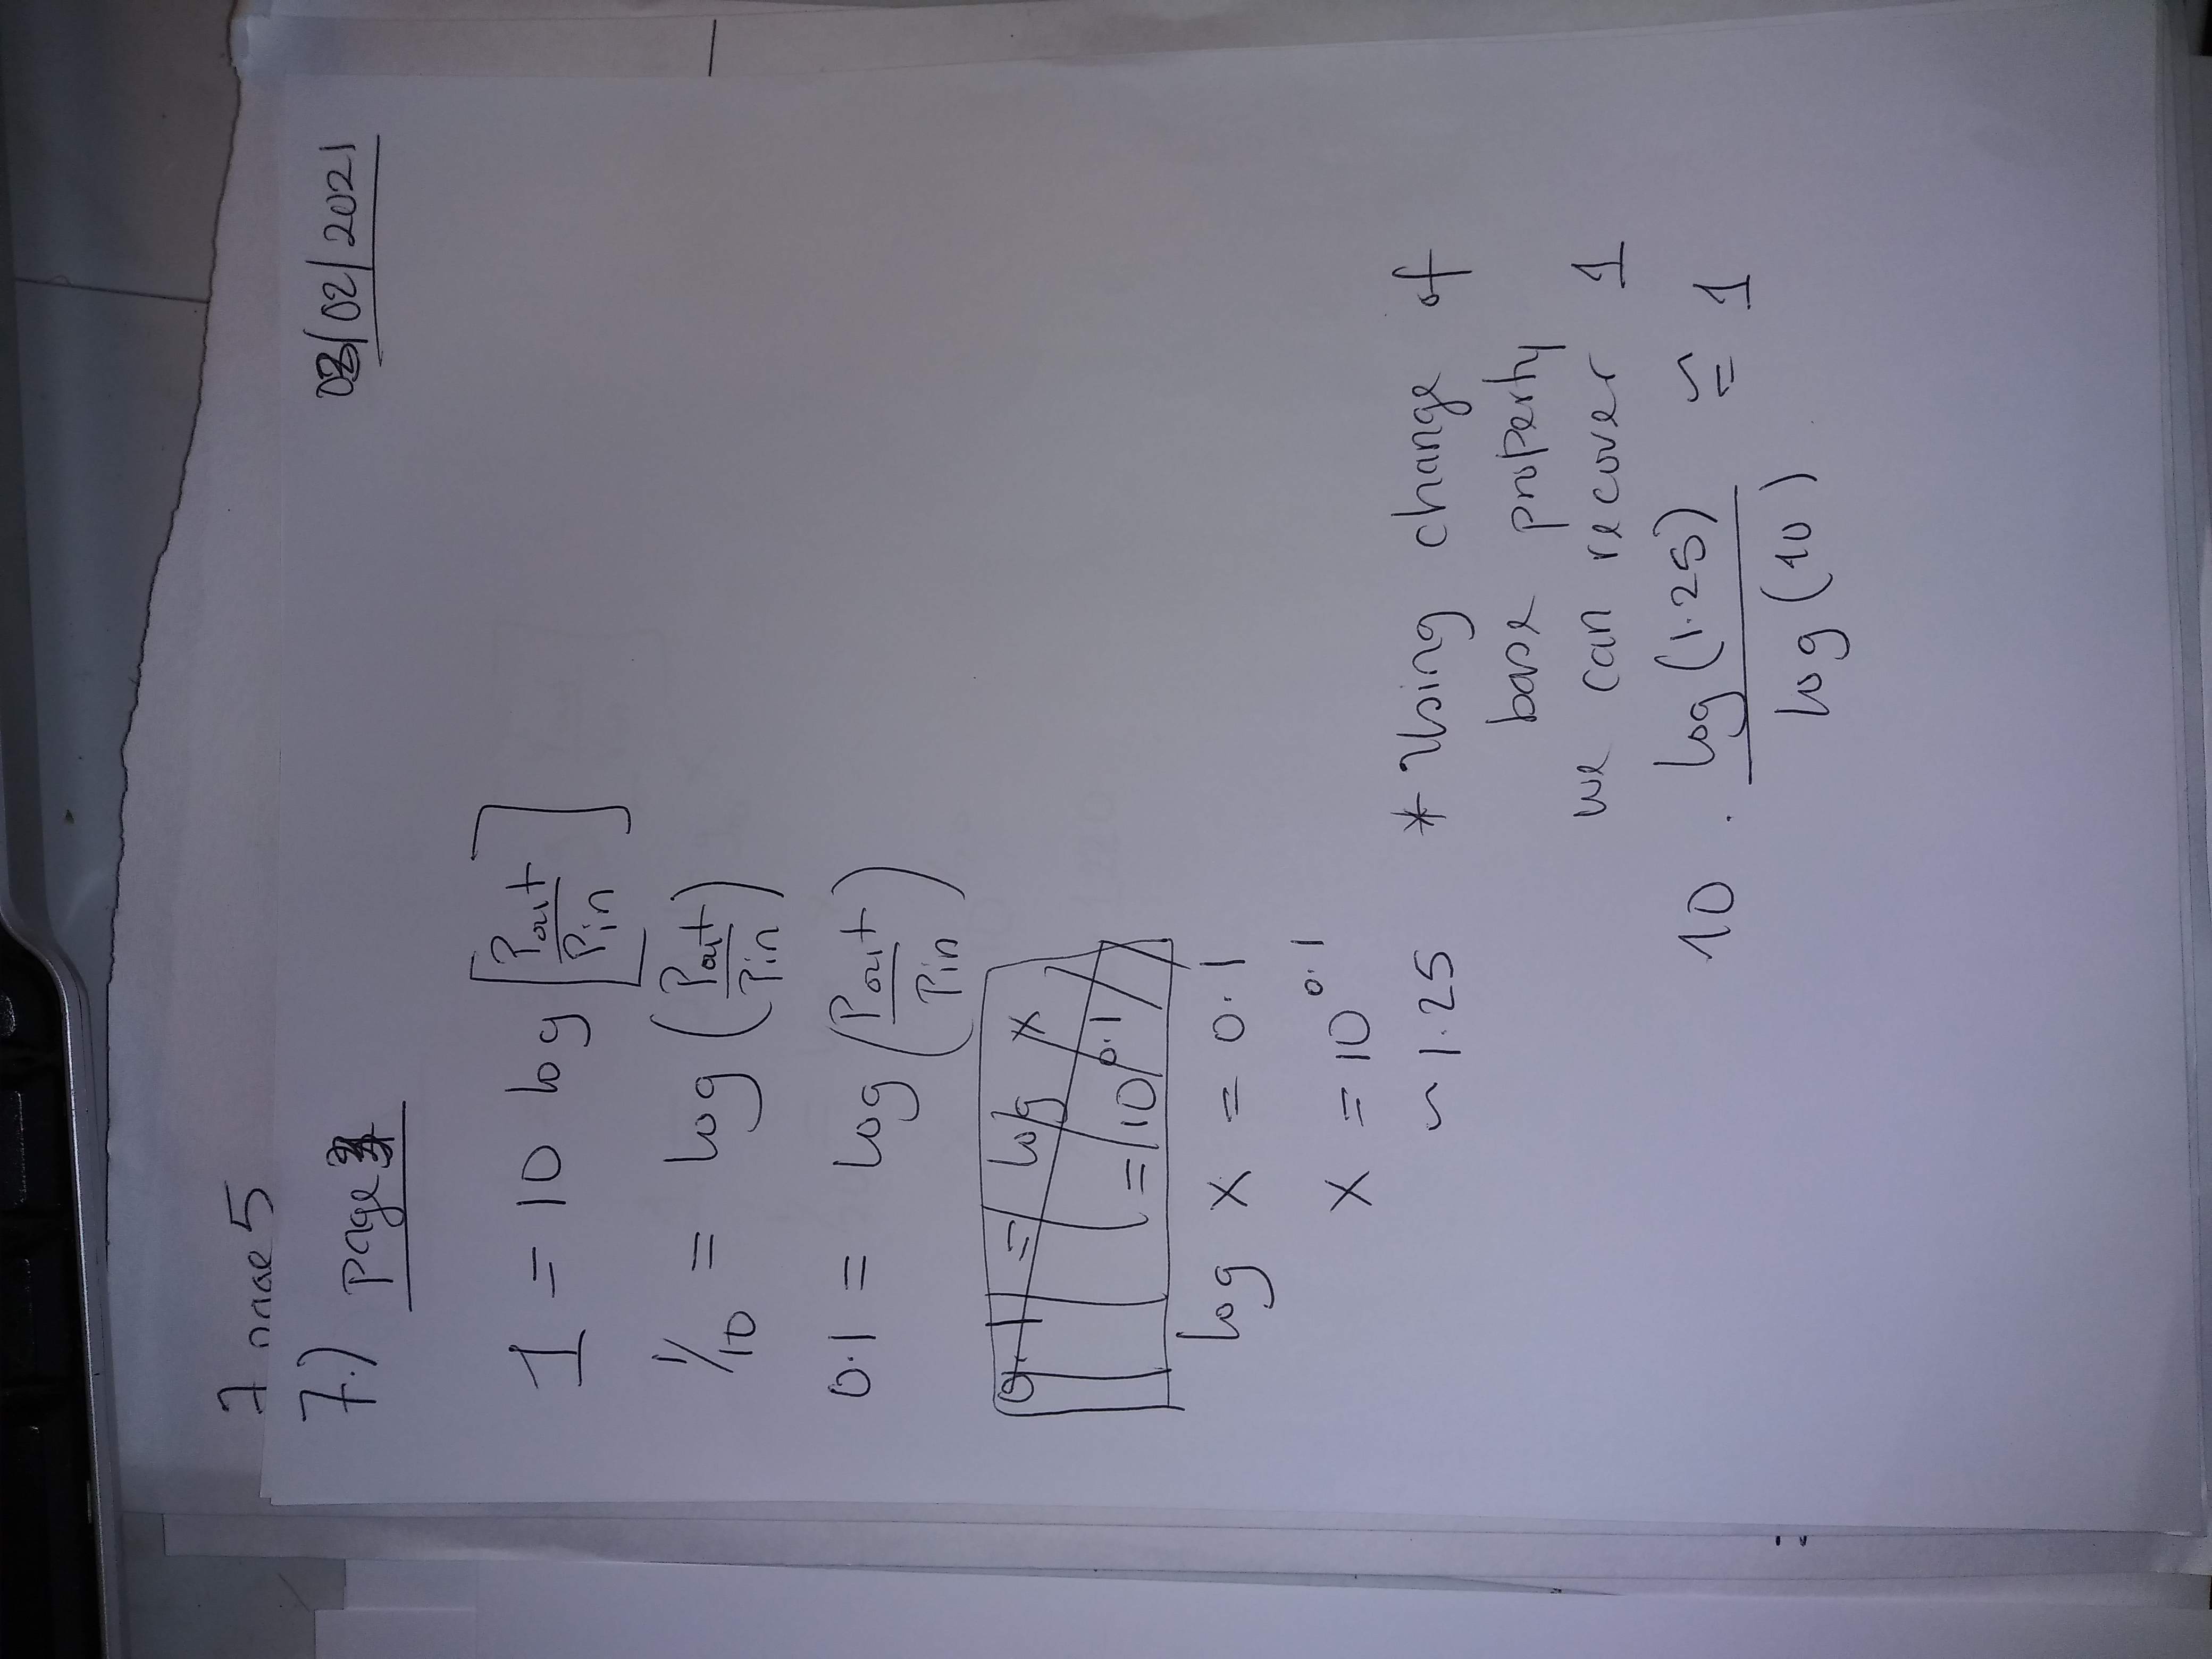 7 page 5
7.) page
03/02/2021
1 = 10 log [Pout/Pin]
1/10 = log (Pout/Pin)
0.1 = log (Pout/Pin)
0.1 = log x
= 10^0.1
log x = 0.1
x = 10^0.1
~ 1.25
* Using change of
base property
we can recover 1
10 . log(1.25)/log(10) ≈ 1